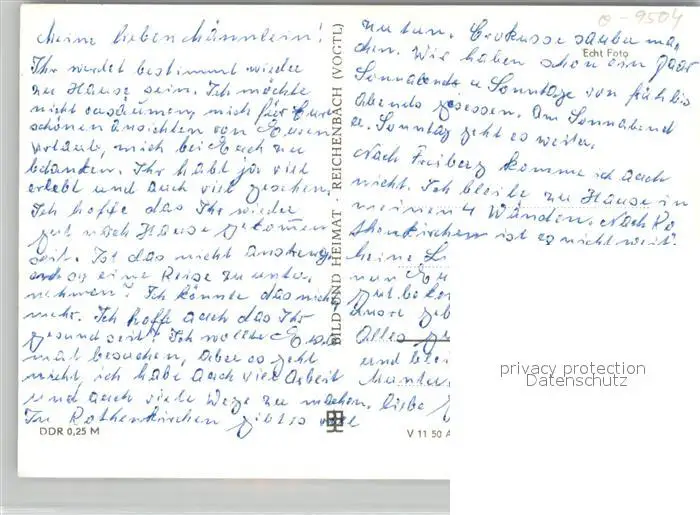 Meine lieben Männlein!
Ihr werdet bestimmt wieder
zu Hause sein. Ich möchte
nicht versäumen, mich für Eure
schönen Ansichten von Euren
Urlaub, mich bei Euch zu
bedanken. Ihr habt ja viel
erlebt und auch viel gesehen.
Ich hoffe das Ihr wieder
gut nach Hause gekommen
seit. Ist das nicht anstreng
end so eine Reise zu unter
nehmen? Ich könnte das nicht
mehr. Ich hoffe auch das Ihr
gesund seit! Ich wollte E
mal besuchen, aber es geht
nicht, ich habe auch viel Arbeit
und auch viele Wege zu machen.
In Rothenkirchen gibt so viel
zu tun.
chen. Wir haben schon ein paar
Sonnabende u Sonntage von früh bis
Abends gesessen. Am Sonnabend
u. Sonntag geht es weiter.
Nach Freiberg komme ich auch
nicht. Ich bleibe zu Hause in
meinen 4 Wänden. Nach Ro
thenkirchen ist es nicht weit.
Alles
und blei
liebe
BILD UND HEIMAT · REICHENBACH (VOGTL)
Echt Foto
o-9504
DDR 0,25 M
V 11 50 A
privacy protection
Datenschutz